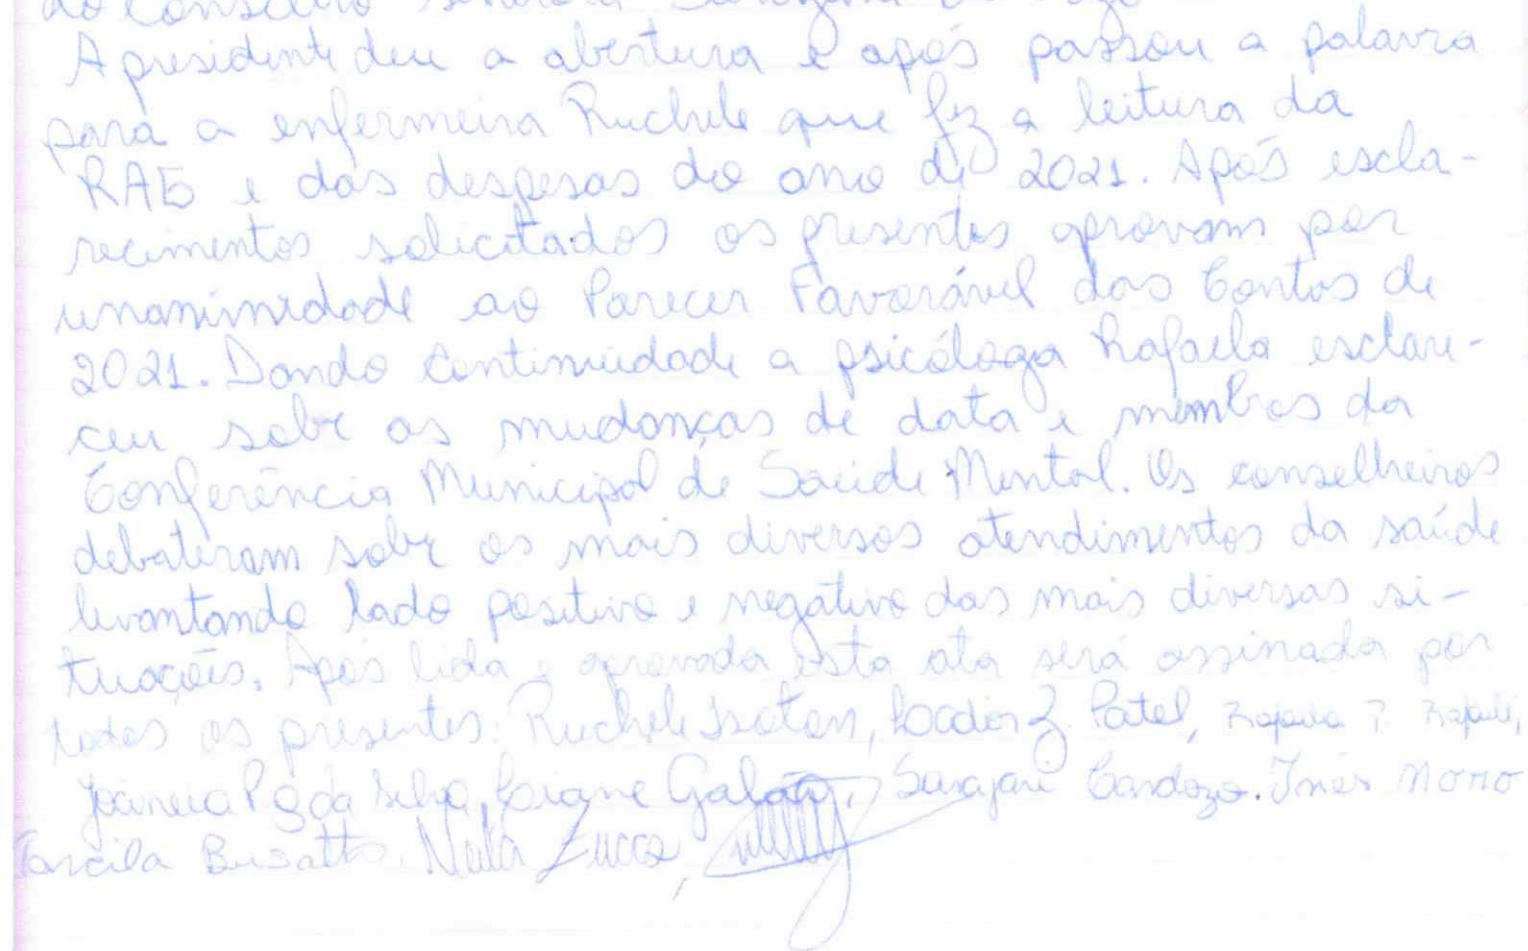 do Conselho senhora
A presidente deu a abertura e após passou a palavra
para a enfermeira Ruchele que fez a leitura da
RAG e das despesas do ano de 2021. Após escla-
recimentos solicitados os presentes aprovam por
unanimidade ao Parecer Favorável das Contas de
2021. Dando continuidade a psicóloga Rafaela esclare-
ceu sobre as mudanças de data e membros da
Conferência Municipal de Saúde Mental. Os conselheiros
debateram sobre os mais diversos atendimentos da saúde
levantando lado positivo e negativo das mais diversas si-
tuações. Após lida e aprovada esta ata será assinada por
todos os presentes: Ruchele Isoton, Patel, Rafaela
da Silva, Galvão, Sarajane Cardozo. Inês Morro
Tarcila Busatto, Neila Zucco,